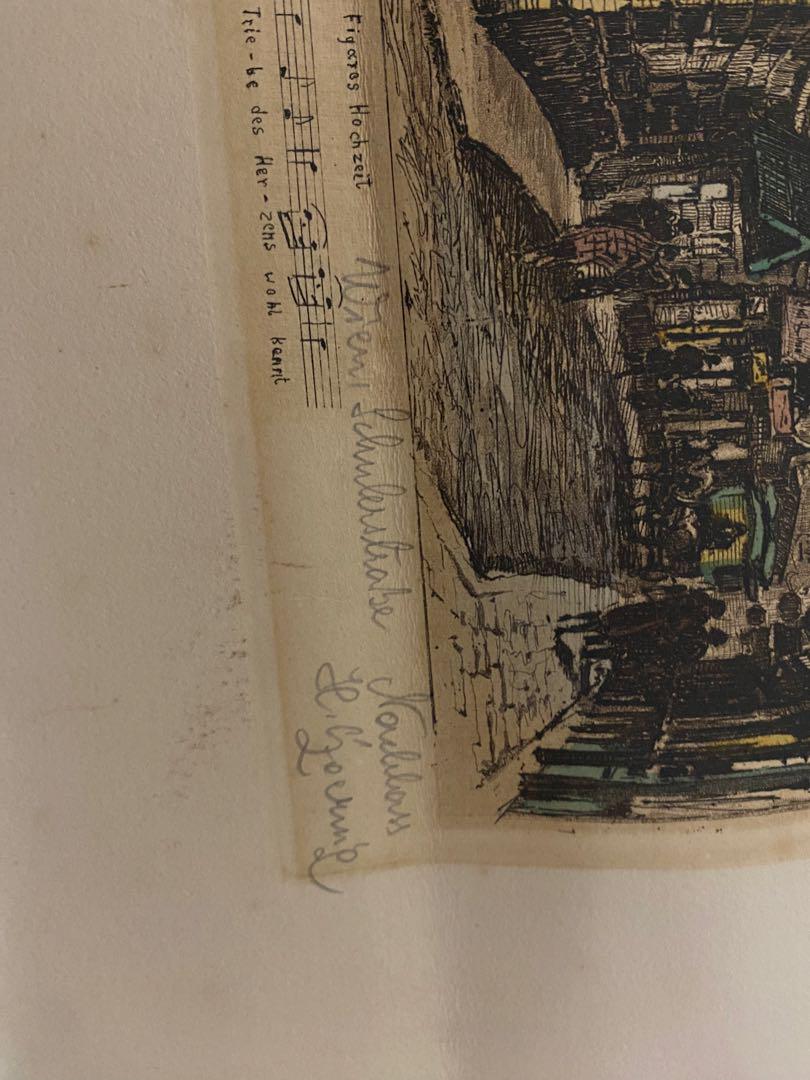 Figaros Hochzeit
Trie-be des Her-zens wohl kennt
Wien, Schulerstraße Nachlass